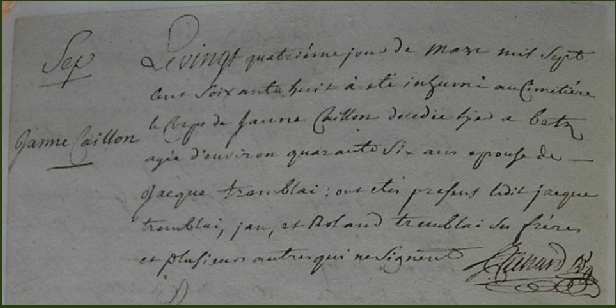 Sep
Le vingt quatriéme jour de mars mil sept
cent soixante huit à été inhumé au Cimetiére
le corps de Janne Caillon decedée hyer a betz
Janne Caillon
agée d'environ quarante six ans epouse de
jacque tremblai ; ont etés presens ledit jacque
tremblai, jan, et Roland tremblai ses fréres
et plusieurs autres qui ne signent